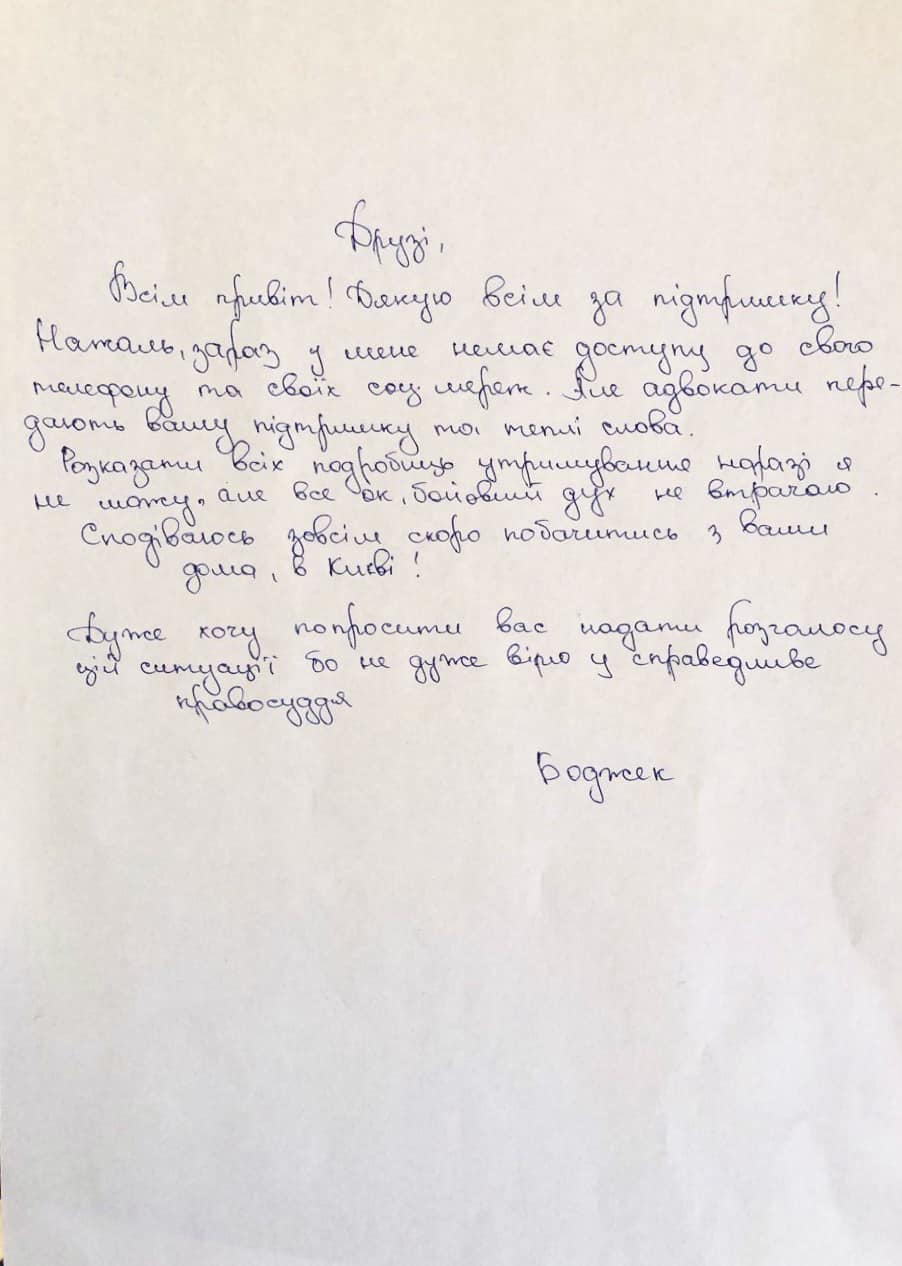 Друзі,
Всім привіт! Дякую всім за підтримку!
Нажаль, зараз у мене немає доступу до свого
телефону та своїх соц. мереж. Але адвокати пере-
дають вашу підтримку та теплі слова.
Розказати всіх подробиць утримування наразі я
не можу, але все ок, бойовий дух не втрачаю.
Сподіваюсь зовсім скоро побачитись з вами
дома, в Києві!
Дуже хочу попросити вас надати розголосу
цій ситуації бо не дуже вірю у справедливе
правосуддя
Боджек